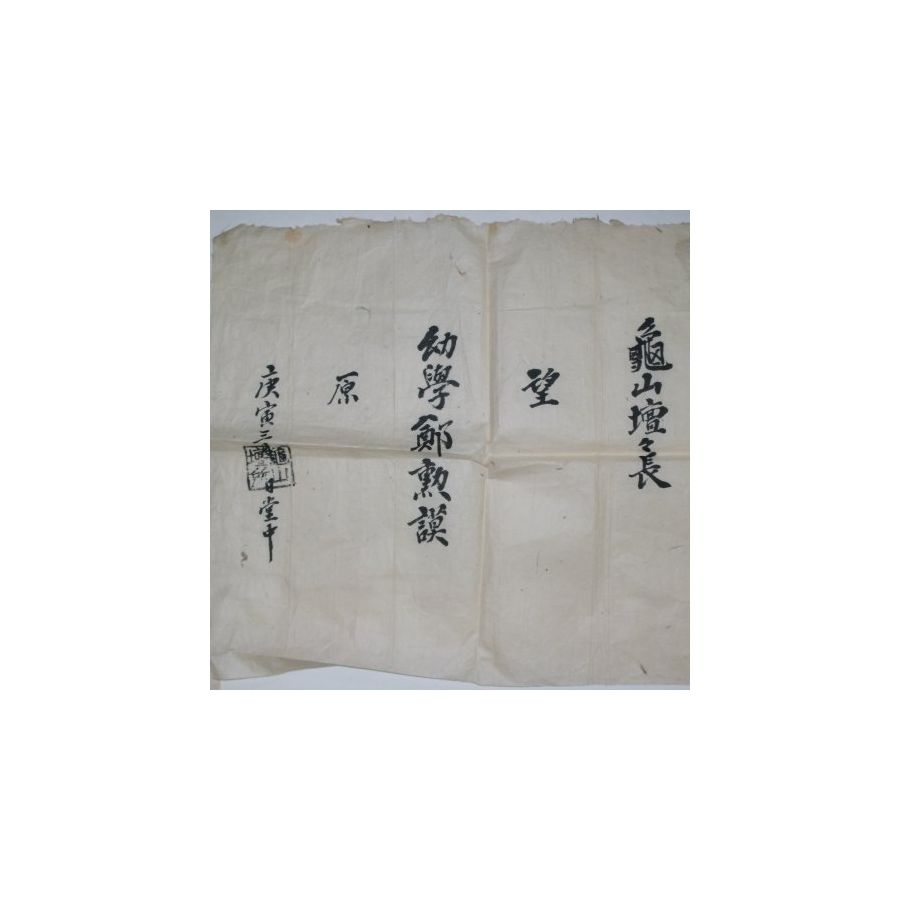 龜山壇々長
望
幼學鄭勳謨
原
庚寅三月 日堂中